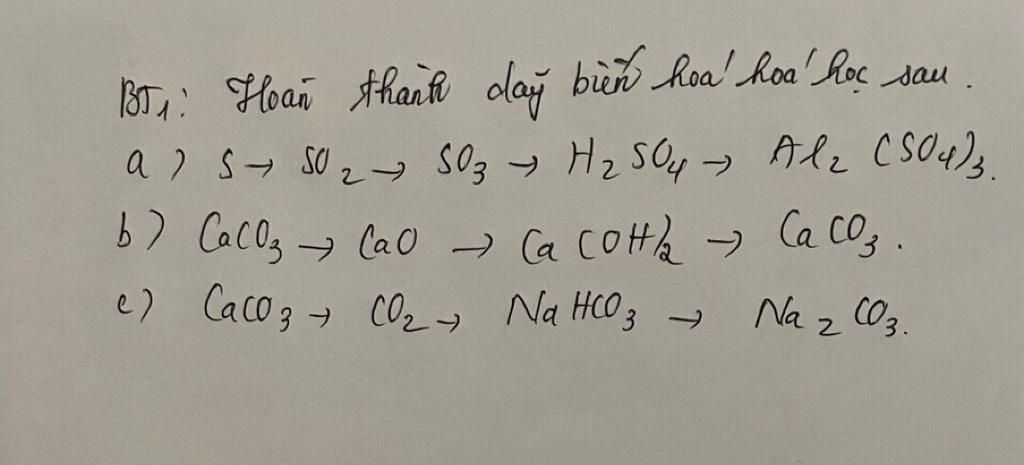 BT1: Hoàn thành dãy biến hoá hoá học sau.
a) S → SO₂ → SO₃ → H₂SO₄ → Al₂(SO₄)₃.
b) CaCO₃ → CaO → Ca(OH)₂ → CaCO₃.
c) CaCO₃ → CO₂ → NaHCO₃ → Na₂CO₃.